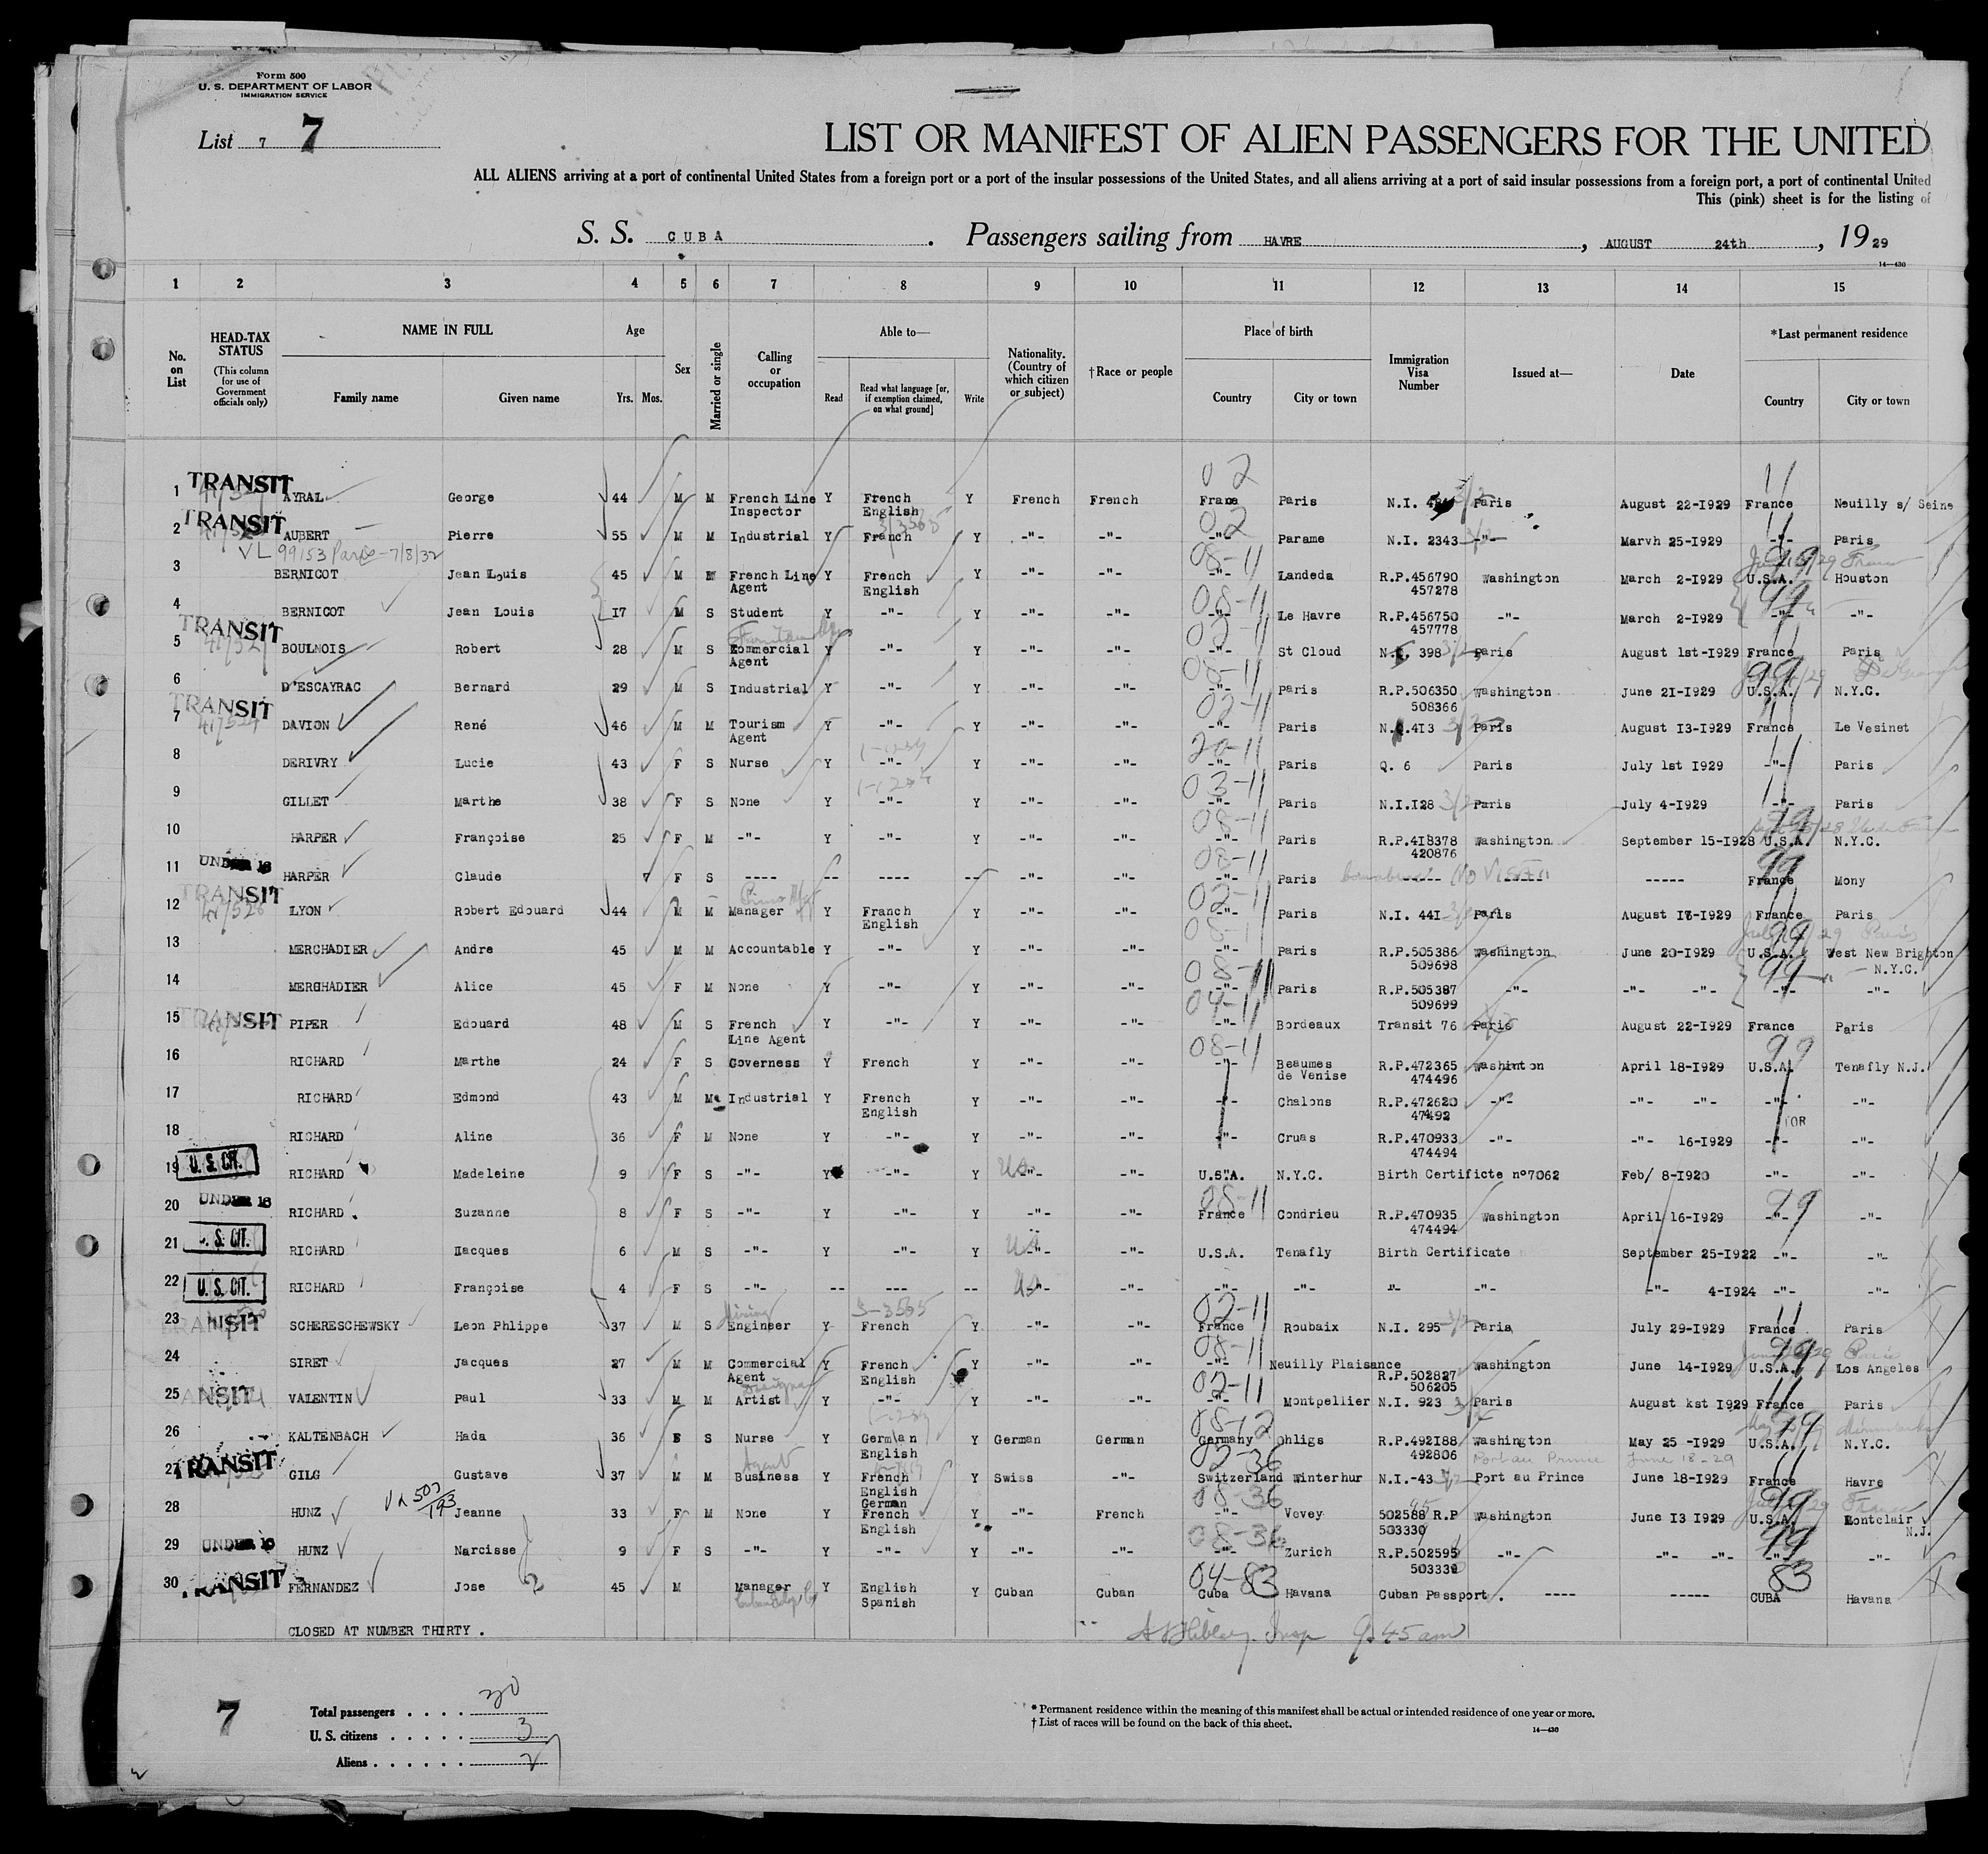 Form 500
U. S. DEPARTMENT OF LABOR
IMMIGRATION SERVICE
List 7 7
LIST OR MANIFEST OF ALIEN PASSENGERS FOR THE UNITED
ALL ALIENS arriving at a port of continental United States from a foreign port or a port of the insular possessions of the United States, and all aliens arriving at a port of said insular possessions from a foreign port, a port of continental United
This (pink) sheet is for the listing of
S. S. CUBA . Passengers sailing from HAVRE , AUGUST 24th , 19 29
14—430
1 2 3 4 5 6 7 8 9 10 11 12 13 14 15
No. on List
HEAD-TAX STATUS (This column for use of Government officials only)
NAME IN FULL Family name Given name
Age Yrs. Mos.
Sex
Married or single
Calling or occupation
Able to— Read Read what language [or, if exemption claimed, on what ground] Write
Nationality. (Country of which citizen or subject)
†Race or people
Place of birth Country City or town
Immigration Visa Number
Issued at—
Date
*Last permanent residence Country City or town
1 TRANSIT AYRAL George 44 M M French Line Inspector Y French English Y French French 02 Frane Paris N.I. Paris August 22-I929 11 France Neuilly s/ Seine
2 TRANSIT AUBERT Pierre 55 M M Industrial Y Franch Y -"- -"- 02 -"- Parame N.I. 2343 -"- Marvh 25-I929 11 -"- Paris
VL 99153 Paris - 7/8/32
3 BERNICOT Jean Louis 45 M M French Line Agent Y French English Y -"- -"- 08-11 -"- Landeda R.P.456790 457278 Washington March 2-I929 99 U.S.A. Houston
4 BERNICOT Jean Louis I7 M S Student Y -"- Y -"- -"- 08-11 -"- Le Havre R.P.456750 457778 -"- March 2-I929 99 -"- -"-
5 TRANSIT BOULNOIS Robert 28 M S Commercial Agent Y -"- Y -"- -"- 02-11 -"- St Cloud N.I. 398 Paris August 1st-I929 France Paris
6 D'ESCAYRAC Bernard 29 M S Industrial Y -"- Y -"- -"- 08-11 -"- Paris R.P.506350 508366 Washington June 2I-I929 99 U.S.A. N.Y.C.
7 TRANSIT DAVION René 46 M M Tourism Agent Y -"- Y -"- -"- 02-11 -"- Paris N.I.4I3 Paris August I3-I929 11 France Le Vesinet
8 DERIVRY Lucie 43 F S Nurse Y -"- Y -"- -"- 20-11 -"- Paris Q. 6 Paris July 1st I929 11 -"- Paris
9 GILLET Marthe 38 F S None Y -"- Y -"- -"- 03-11 -"- Paris N.I.I28 Paris July 4-I929 11 -"- Paris
10 HARPER Françoise 25 F M -"- Y -"- Y -"- -"- 08-11 -"- Paris R.P.4I8378 420876 Washington September 15-I928 99 U.S.A. N.Y.C.
11 UNDER 16 HARPER Claude F S ---- -- ---- -- -"- -"- 08-11 -"- Paris ----- ----- ----- 99 France Mony
12 TRANSIT LYON Robert Edouard 44 M M Manager Y Franch English Y -"- -"- 02-11 -"- Paris N.I. 44I Paris August I6-I929 France Paris
13 MERCHADIER Andre 45 M M Accountable Y -"- Y -"- -"- 08-11 -"- Paris R.P.505386 509698 Washington June 20-I929 99 U.S.A. West New Brighton N.Y.C.
14 MERGHADIER Alice 45 F M None Y -"- Y -"- -"- 08-11 -"- Paris R.P.505387 509699 -"- -"- -"- 99 -"- -"-
15 TRANSIT PIPER Edouard 48 M S French Line Agent Y -"- Y -"- -"- 04-11 -"- Bordeaux Transit 76 Paris August 22-I929 France Paris
16 RICHARD Marthe 24 F S Governess Y French Y -"- -"- 08-11 -"- Beaumes de Venise R.P.472365 474496 Washinton April I8-I929 99 U.S.A. Tenafly N.J.
17 RICHARD Edmond 43 M M Industrial Y French English Y -"- -"- -"- Chalons R.P.472620 47492 -"- -"- -"- -"- -"-
18 RICHARD Aline 36 F M None Y -"- Y -"- -"- -"- Cruas R.P.470933 474494 -"- -"- I6-I929 -"- -"-
19 U. S. CIT. RICHARD Madeleine 9 F S -"- Y -"- Y US -"- -"- U.S.A. N.Y.C. Birth Certificte n°7062 Feb/ 8-I920 -"- -"-
20 UNDER 16 RICHARD Suzanne 8 F S -"- Y -"- Y -"- -"- 08-11 France Condrieu R.P.470935 474494 Washington April I6-I929 99 -"- -"-
21 U. S. CIT. RICHARD Jacques 6 M S -"- Y -"- Y US -"- -"- U.S.A. Tenafly Birth Certificate September 25-I922 -"- -"-
22 U. S. CIT. RICHARD Françoise 4 F S -"- -- --- -- US -"- -"- -"- -"- -"- -"- -"- 4-I924 -"- -"-
23 TRANSIT SCHERESCHEWSKY Leon Phlippe 37 M S Mining Engineer Y French Y -"- -"- 02-11 France Roubaix N.I. 295 Paris July 29-I929 11 France Paris
24 SIRET Jacques 27 M M Commercial Agent Y French English Y -"- -"- 08-11 -"- Neuilly Plaisance R.P.502827 506205 Washington June I4-I929 99 U.S.A. Los Angeles
25 TRANSIT VALENTIN Paul 33 M M Designer Artist Y -"- Y -"- -"- 02-11 -"- Montpellier N.I. 923 Paris August kst I929 11 France Paris
26 KALTENBACH Hada 36 F S Nurse Y German English Y German German 08-12 Germany Ohligs R.P.492I88 492806 Washington May 25 -I929 99 U.S.A. N.Y.C.
Port au Prince June 18-29
27 TRANSIT GILG Gustave 37 M M Agent Business Y French English German Y Swiss -"- 02-36 Switzerland Winterhur N.I.-43 Port au Prince June I8-I929 11 France Havre
28 HUNZ Jeanne 33 F M None Y French English Y -"- French 08-36 -"- Vevey 502588 R.P 503330 Washington June I3 I929 99 U.S.A. Montclair N.J.
29 UNDER 16 HUNZ Narcisse 9 F S -"- Y -"- Y -"- -"- 08-36 -"- Zurich R.P.502595 503332 -"- -"- -"- 99 -"- -"-
30 TRANSIT FERNANDEZ Jose 45 M Manager Y English Spanish Y Cuban Cuban 04-83 Cuba Havana Cuban Passport . ---- ----- 83 CUBA Havana
CLOSED AT NUMBER THIRTY .
Insp 9.45 am
7
Total passengers . . . . 30
U. S. citizens . . . . . 3
Aliens . . . . . . 27
* Permanent residence within the meaning of this manifest shall be actual or intended residence of one year or more.
† List of races will be found on the back of this sheet.
14—430